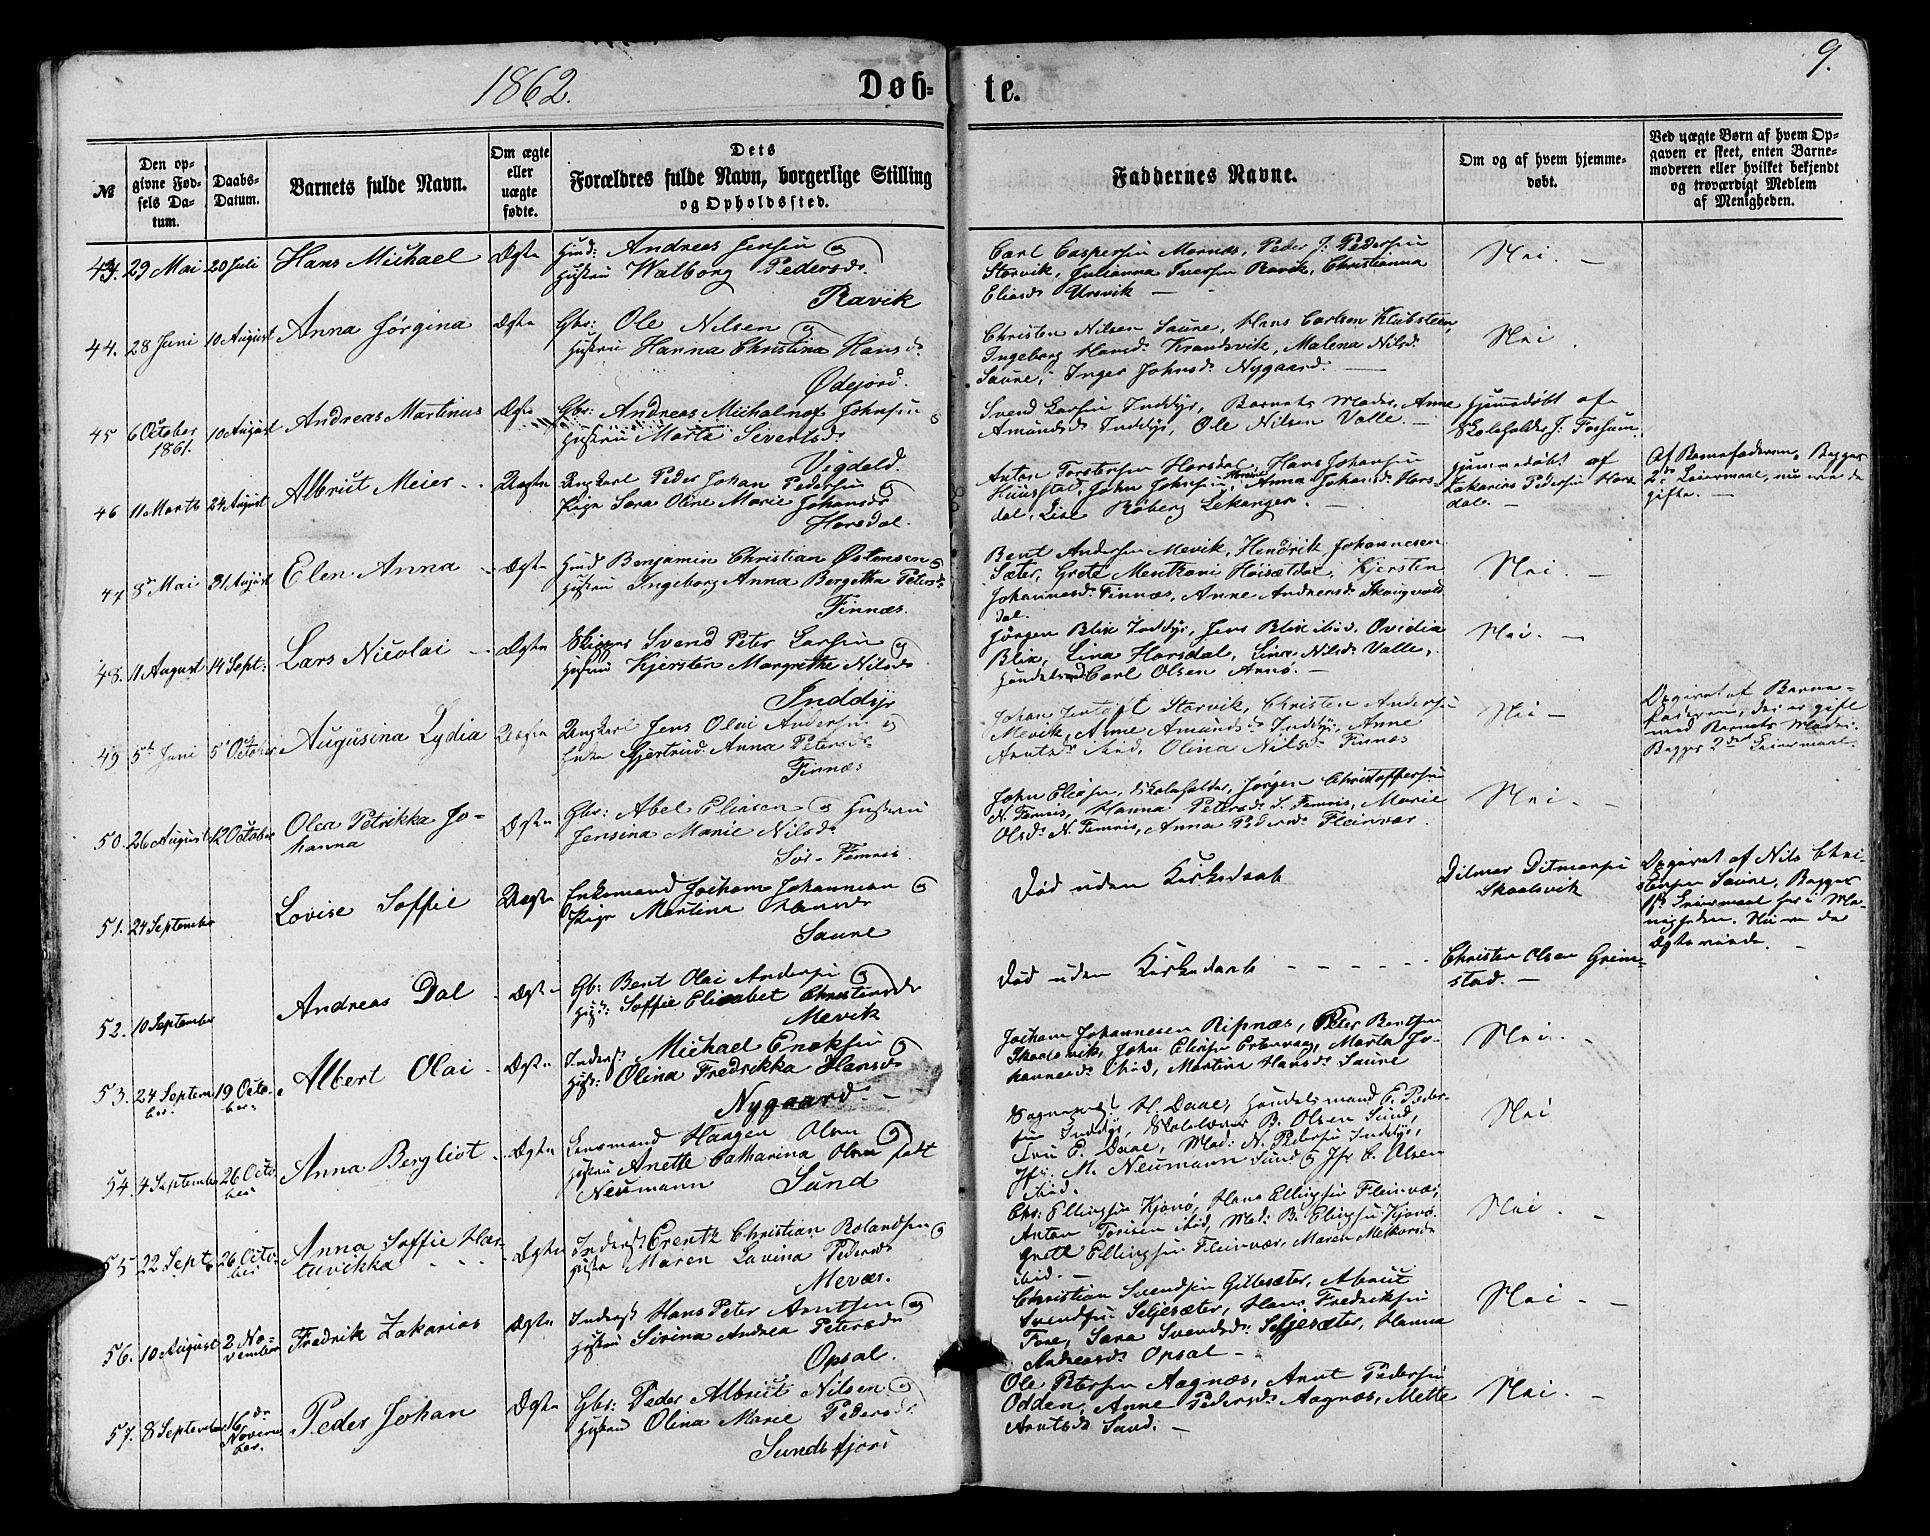 1862.
Døb=
te.
9.
№
Den op=
givne Fød=
sels Da=
tum.
Daabs=
Datum.
Barnets fulde Navn.
Om ægte
eller
uægte
fødte.
Dets
Forældres fulde Navn, borgerlige Stilling
og Opholdssted.
Faddernes Navne.
Om og af hvem hjemme=
døbt.
Ved uægte Børn af hvem Op=
gaven er skeet, enten Barne=
moderen eller hvilket bekjendt
og troværdigt Medlem
af Menigheden.
43. 29 Mai 20 Juli Hans Michael Ægte Huusm: Andreas Jensen og
Hustru Walborg Pedersd.
Ravik
Carl Caspersen Mornæs, Peder J. Pedersen
Storvik, Julianna Iversen Ravik, Christianna
Eliasd. Ursvik —
Nei. —
44. 28 Juni 10 August Anna Jørgina Ægte Gbr: Ole Nilsen og
Hustru Hanna Christina Hansd.
Ødejord.
Christen Nilsen Saure, Hans Carlsen Klubsteen,
Ingeborg Hansd. Krandsvik, Malena Nilsd.
Saure, Inger Johnsd. Nygaard. —
Nei.
45 6 October
1861. 10 August Andreas Martinus Ægte Gbr: Andreas Michalnof Johnsen og
Hustru Marta Sivertsd.
Vigdal.
Svend Larsen Inddyr, Barnets Moder, Anne
Amundsd. Inddyr, Ole Nilsen Valle. —
Hjemedøbt af
Skoleholder J. Fossum.
46 11 Marts 24 August Albriut Meier Uægte Ungkarl Peder Johan Pedersen
og Pige Sara Oline Marie Johansd.
Horsdal.
Anton Torstensen Horsdal, Hans Johansen
Huusstad, John Johnsen, Anna Johansd. Hors=
dal, Lise Røberg Lekanger. —
Hjemmedøbt af
Zakarias Pedersen Hors=
dal. —
Af Barnefaderen, Begges
2det Leiermaal, nu ere de
gifte. —
47 8de Mai 31 August Elen Anna Ægte Huusm Benjamin Christian Østensen og
Hustru Ingeborg Anna Bergetha Petersd.
Finnæs.
Bent Andersen Mevik, Hendrik Johannesen
Sæter, Grete Mentzoni Høisætdal, Kjersten
Johannesd. Finnæs, Anne Andreasd. Skougvold
dal.
Nei. —
48. 11 August 14 Sept: Lars Nicolai Ægte Skipper Svend Peter Larsen og
Hustru Kjersten Margrethe Nilsd.
Inddyr
Jørgen Blix Inddyr, Jens Blix ibid. Ovidia
Blix, Lina Horsdal, Lina Nilsd. Valle,
Handelsmd Carl Olsen Arnø. —
Nei. —
49 5te Juni 5 October Augusina Lydia Uægte Ungkarl Jens Olai Andersen og
Enke Gjertrud Anna Petersd.
Finnæs
Johan Jentoft Storvik, Christen Andersen
Mevik, Anne Amundsd. Inddyr, Anne
Arntsd. ibid, Olina Nilsd. Finnæs
Nei —
Opgivet af Barne=
faderen, der er gift
med Barnets Moder.
Begges 2det Leiermaal.
50. 26 August 12 October Olea Petrikka Jo=
hanna Ægte Gbr: Abel Eliasen og Hustru
Jensina Marie Nilsd.
Sør-Femris.
John Eliasen, Skoleholder, Jørgen Christoffersen
N. Femris, Hanna Petersd. S. Femris, Marie
Olsd. N. Femris, Anna Pedersd. Fleinvær.
Nei. —
51. 24 September Lovise Soffie Uægte Enkemand Jochom Johannesen og
Pige Martina Hansd.
Saure
Død uden Kirkedaab
Ditmar Ditmarsen
Skaalsvik
Opgivet af Nils Chri=
stensen Saure, Begges
1ste Leiermaal her i Me=
nigheden. Nu ere de
Ægteviede. —
52. 10 September Andreas Dal Ægte Gb: Bent Olai Andersen og
Hust: Soffie Elisabet Christensd.
Mevik
Død uden Kirkedaab - - - - - -
Christen Olsen Grim=
stad. —
53. 24 Septem
ber. 19 Octo=
ber. Albert Olai Ægte Inderst Michael Enoksen og
Hust: Olina Fredrikka Hansd.
Nygaard. —
Jochom Johannesen Ripnæs, Peter Bentsen
Skaalsvik, John Eliasen Ertenvaag, Marta Jo=
hannesd. ibid, Martina Hansd. Saure
Nei. —
54. 4 September 26 Octo
ber Anna Bergliot Ægte Lensmand Haagen Olsen og
Hustru Anette Catharina Olsen født
Neumann Sund
Sognepræst H. Daae, Handelsmand E. Peder=
sen Inddyr, Skolelærer B. Olsen Sund,
Fru E. Daae, Mad: N. Petersen Inddyr,
Jfr: M. Neumann Sund og Jfr C. Olsen
ibid.
Nei
55 22 Sept 26 Octo
ber Anna Soffie Har=
tuvikka Ægte Inderst Erentz Christian Rolandsen og
Hustr Maren Lavina Pedersd.
Mevær.
Chr: Ellingsen Kjørnø, Hans Ellingsen Fleinvær,
Anton Torisen ibid, Mad: B. Ellingsen Kjørnø
Grete Ellingsen Fleinvær, Maren Meikorsd.
ibid. —
Nei. —
56. 10 August 2 No=
vember Fredrik Zakarias Ægte Inderst Hans Peter Arntsen og
Hustru Sirina Andrea Petersd.
Opsal.
Christian Svendsen Gillesæter, Abriut
Svendsen Seljesæter, Hans Fredriksen
Fore, Sara Svendsd. Seljesæter, Hanna
Andreasd. Opsal —
Nei - —
57. 8 September 16de
Novem
ber. Peder Johan Ægte Gbr: Peder Albriut Nilsen og
Hustru Olina Marie Pedersd.
Sundsfjord
Ole Petersen Aagnæs, Arnt Pedersen
Odden, Anne Pedersd. Aagnæs, Mette
Arntsd. Sand. —
Nei. —